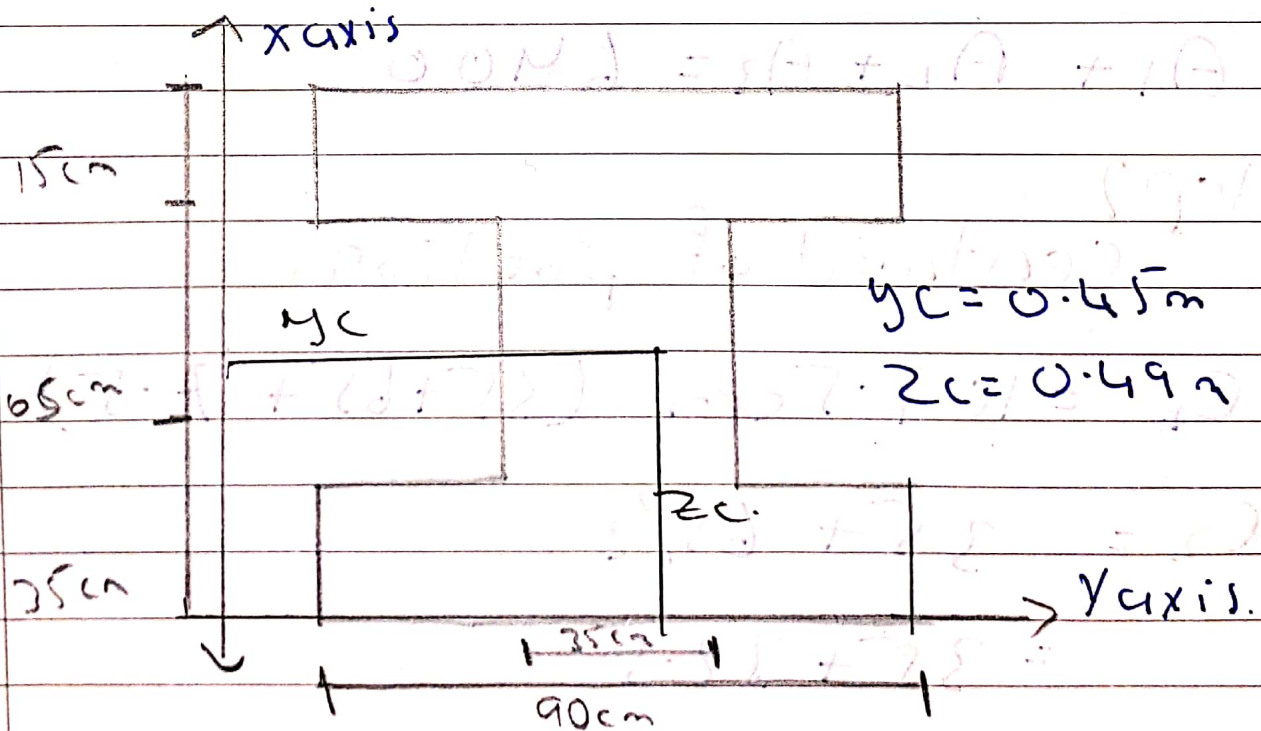 x axis
15cm
yc
yc = 0.45m
zc = 0.49m
65cm
zc.
35cm
y axis.
35cm
90cm